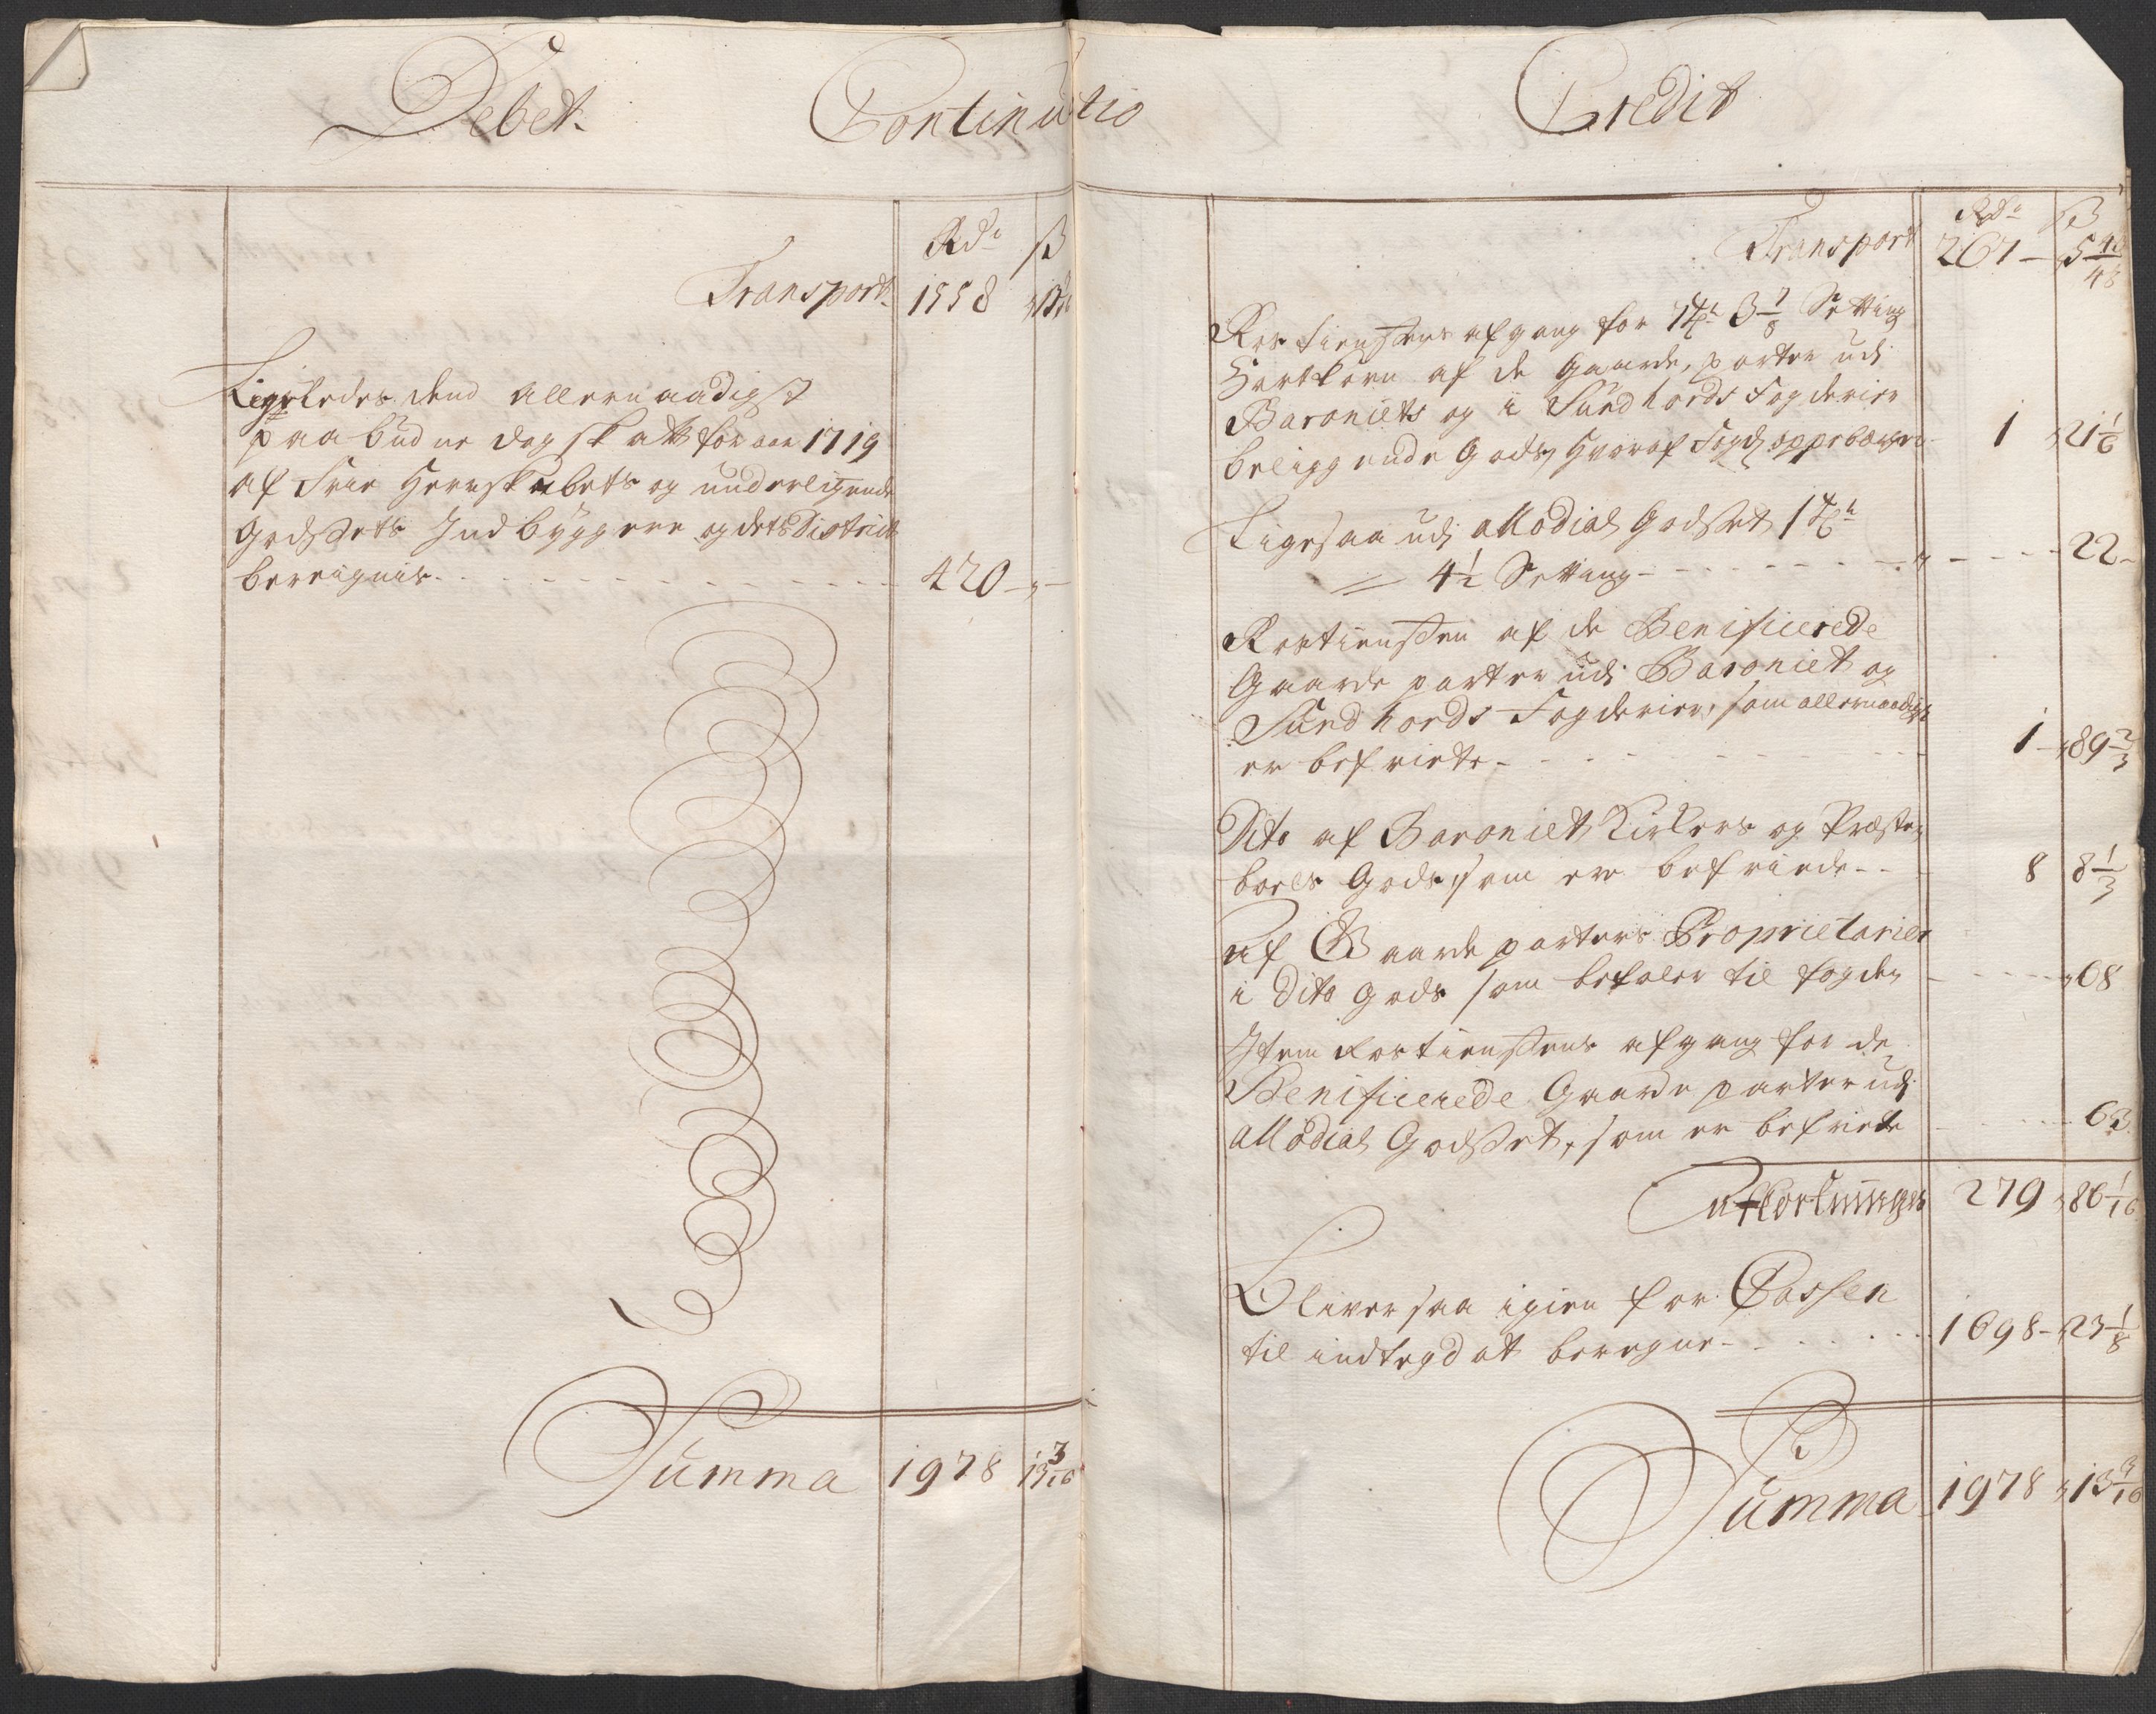 Debet.
Continutio
Credit
Rdr ß
Transport 1558 13
Ligeledes dend allernaadigst
paabudne dagskatt for aar 1719
af Frie Herrskabets og underligende
Godssets Indbyggere og dets District
bereignis - - - 420 - „ -
Summa 1978 13 3/16
Rdr ß
Transport 267 - 5 41/48
Rostienstens afgang for 14 3 7/8 Setting
Hartkorn af de Gaarde, parter udj
Baroniets og i Sundhords Fogderier
beliggende Gods, hvoraf Fogd oppebærer 1 „ 21 1/6
Ligesaa udj Allodial Godset 1
4 1/2 Setting - - - „ - - - 22 -
Rostiensten af de Benificerede
Gaarde parter udj Baroniet og
Sundhords Fogderier, som allernaadigst
er befriete - - - 1 - „ 89 2/3
Dito af Baroniet Kirkers og Præste,
boels Gods, som er befriede - - 8 8 1/3
af Gaarde parters Proprietarier
i Dito Gods som betaler til fogden - - - „ 68
Item Rostienstens afgang for de
Benificerede Gaarde parter udj
Allodial Godsset, som er befriete - - - 63
Afkortninger 279 „ 86 1/16
Bliver saa igien for Cassen
til indtegd at beregne - - - 1698 - „ 23 1/8
Summa 1978 „ 13 3/16